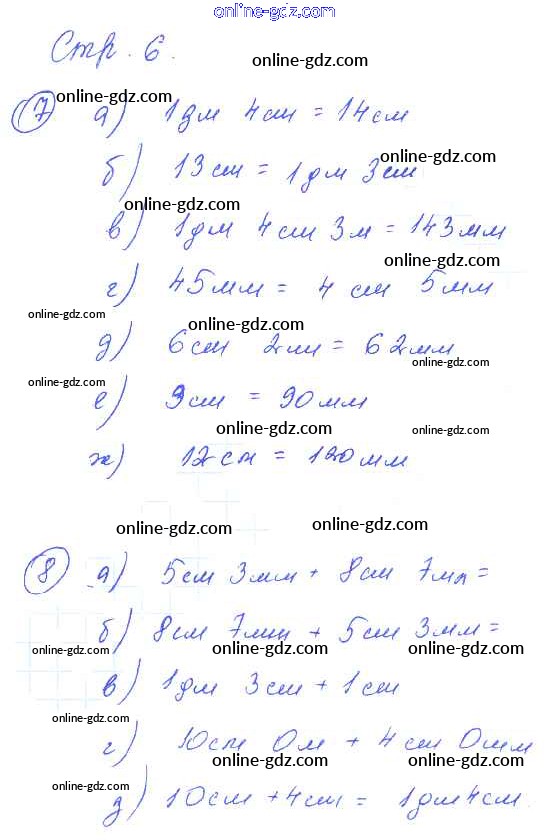 online-gdz.com
Стр. 6.
online-gdz.com
online-gdz.com
7 а) 1дм 4см = 14см
online-gdz.com
б) 13см = 1дм 3см
online-gdz.com
в) 1дм 4см 3м = 143мм
online-gdz.com
г) 45мм = 4см 5мм
online-gdz.com
online-gdz.com
д) 6см 2мм = 62мм
online-gdz.com
online-gdz.com
е) 9см = 90мм
online-gdz.com
online-gdz.com
ж) 12см = 120мм
online-gdz.com
online-gdz.com
8 а) 5см 3мм + 8см 7мм =
online-gdz.com
б) 8см 7мм + 5см 3мм =
online-gdz.com
online-gdz.com
в) 1дм 3см + 1см
online-gdz.com
online-gdz.com
г) 10см 0м + 4см 0мм
online-gdz.com
online-gdz.com
д) 10см + 4см = 1дм 4см.
online-gdz.com